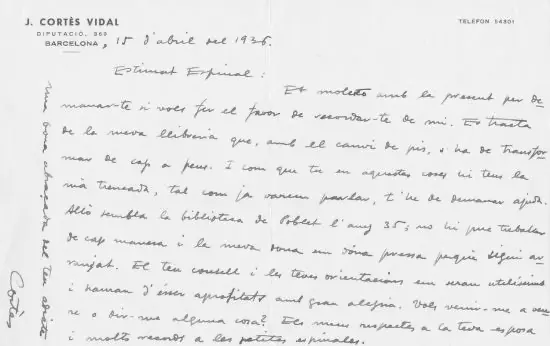 J. CORTÈS VIDAL
DIPUTACIÓ, 369
BARCELONA
TELÈFON 54301
, 15 d'abril del 1936.
Estimat Espinal:
Et molesto amb la present per de-
manar-te si vols fer el favor de recordar-te de mi. Es tracta
de la meva llibreria que, amb el canvi de pis, s'ha de transfor-
mar de cap a peus. I com que tu en aquestes coses hi tens la
mà trencada, tal com ja vàrem parlar, t'he de demanar ajuda.
Allò sembla la biblioteca de Poblet l'any 35; no hi puc treballar
de cap manera i la meva dona em dóna pressa perquè sigui ar-
ranjat. El teu consell i les teves orientacions em seran utilíssims
i hauran d'ésser aprofitats amb gran alegria. Vols venir-me a veu-
re o dir-me alguna cosa? Els meus respectes a la teva esposa
i molts records a les petites espinales.
Una bona abraçada del teu adicte
Cortès